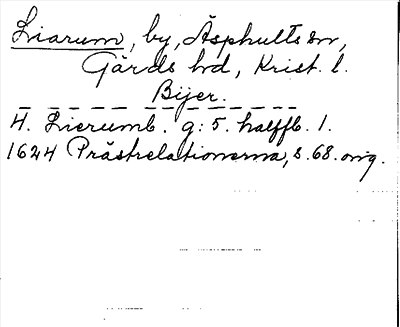 Liarum, by, Äsphults sn,
Gärds hd, Krist. l.
Bijer.
H. Lierumb. g: 5. halffb. 1.
1624 Prästrelationerna, s. 68. orig.